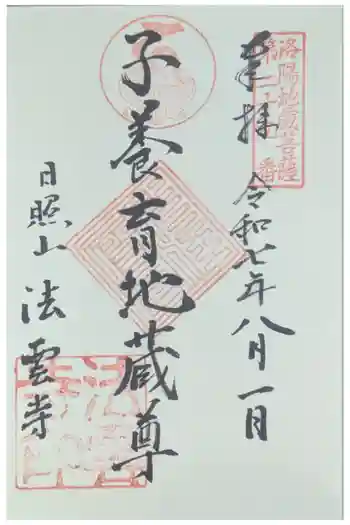 奉拝
令和七年八月一日
子養育地蔵尊
日照山
法雲寺
洛陽地蔵菩薩